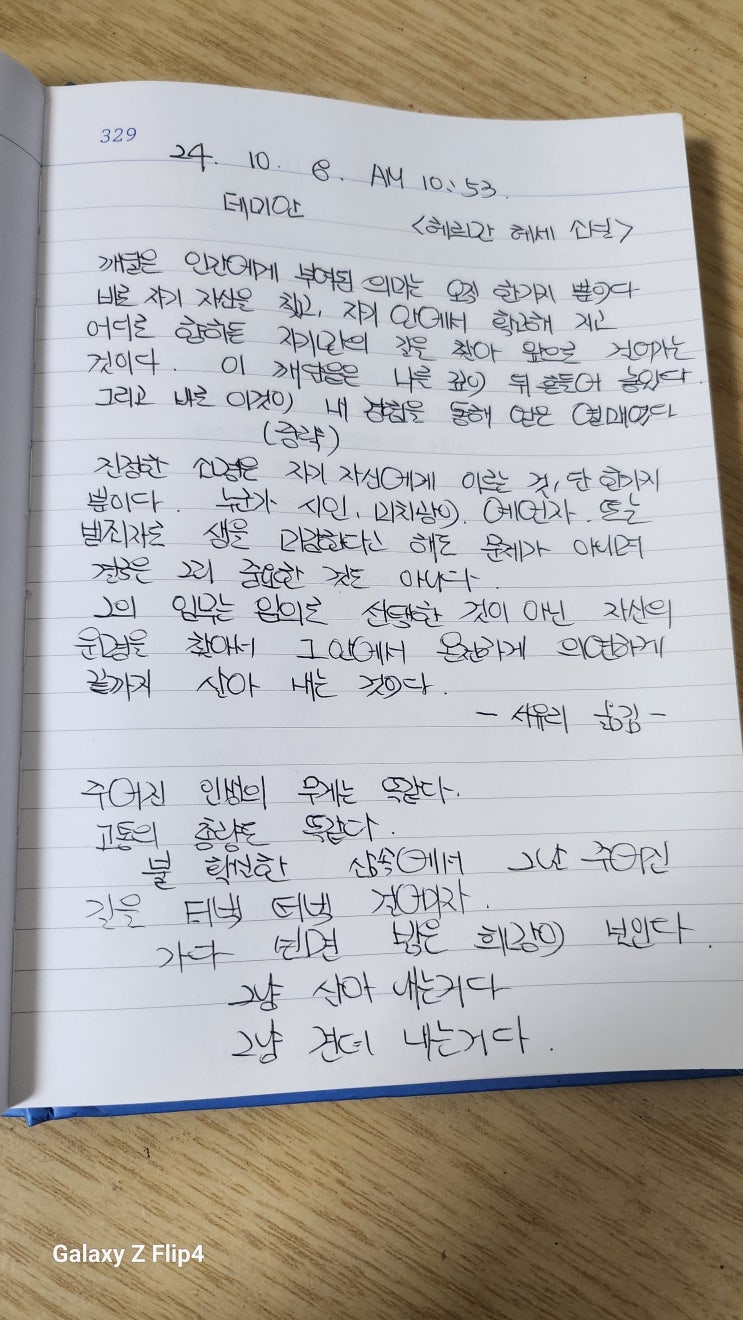 329
24. 10. 8. AM 10:53.
데미안
<헤르만 헤세 소설>
깨달은 인간에게 부여된 의미는 오직 한가지 뿐이다
바로 자기 자신을 찾고, 자기 안에서 확고해 지고
어디로 향하든 자기만의 길을 찾아 앞으로 걸어가는
것이다. 이 깨달음은 나를 깊이 뒤 흔들어 놓았다.
그리고 바로 이것이 내 경험을 통해 얻은 열매였다
(중략)
진정한 소명은 자기 자신에게 이르는 것, 단 한가지
뿐이다. 누군가 시인, 미치광이, 예언자 또는
범죄자로 생을 마감한다고 해도 문제가 아니며
결국은 그리 중요한 것도 아니다.
그의 임무는 임의로 선택한 것이 아닌 자신의
운명을 찾아서 그 안에서 온전하게 의연하게
끝까지 살아 내는 것이다.
- 서유리 옮김 -
주어진 인생의 무게는 똑같다.
고통의 총량도 똑같다.
불 확실한 삶속에서 그냥 주어진
길을 터벅 터벅 걸어가자.
가다 보면 밝은 희망이 보인다.
그냥 살아 내는거다
그냥 견뎌 내는거다.
Galaxy Z Flip4